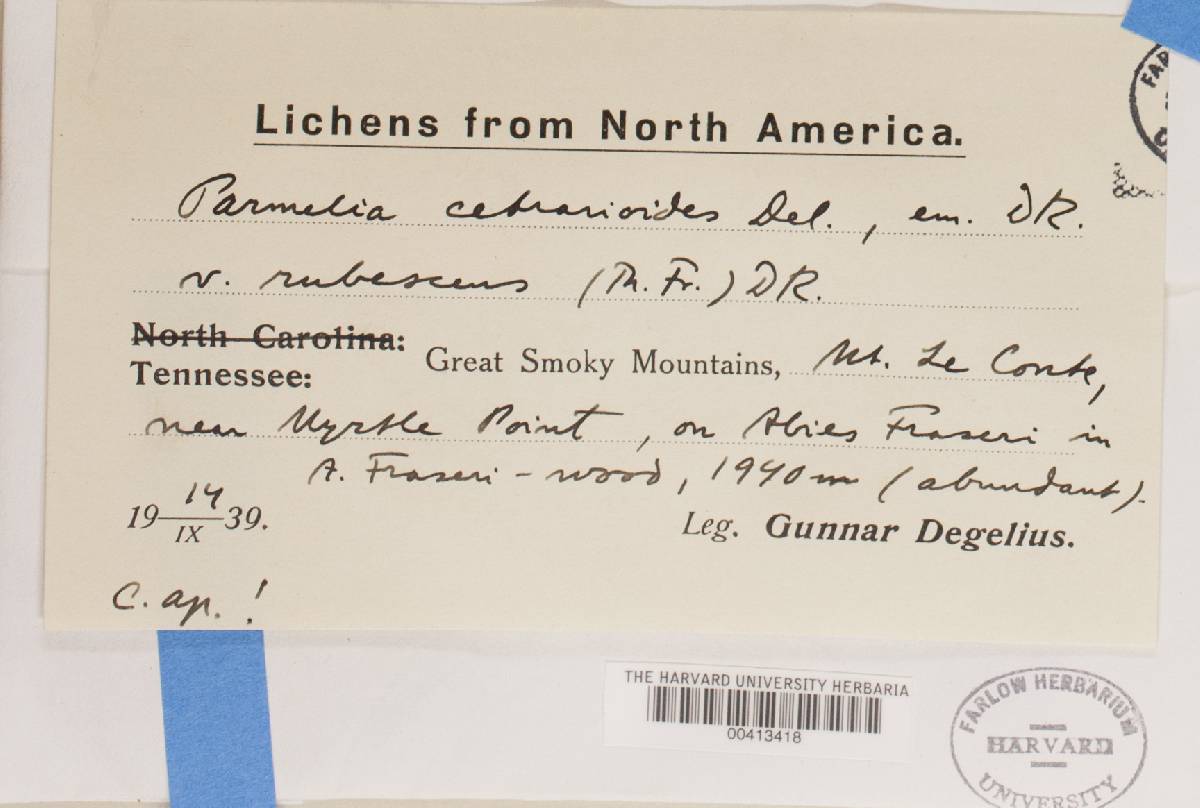 Lichens from North America.
Parmelia cetrarioides Del., em. DR.
v. rubescens (Th. Fr.) DR.
North Carolina:
Tennessee:
Great Smoky Mountains, Mt. Le Conte,
near Myrtle Point, on Abies Fraseri in
A. Fraseri-wood, 1940 m (abundant).
19 14/IX 39.
Leg. Gunnar Degelius.
C. ap. !
THE HARVARD UNIVERSITY HERBARIA
00413418
FARLOW HERBARIUM
HARVARD
UNIVERSITY
FAR